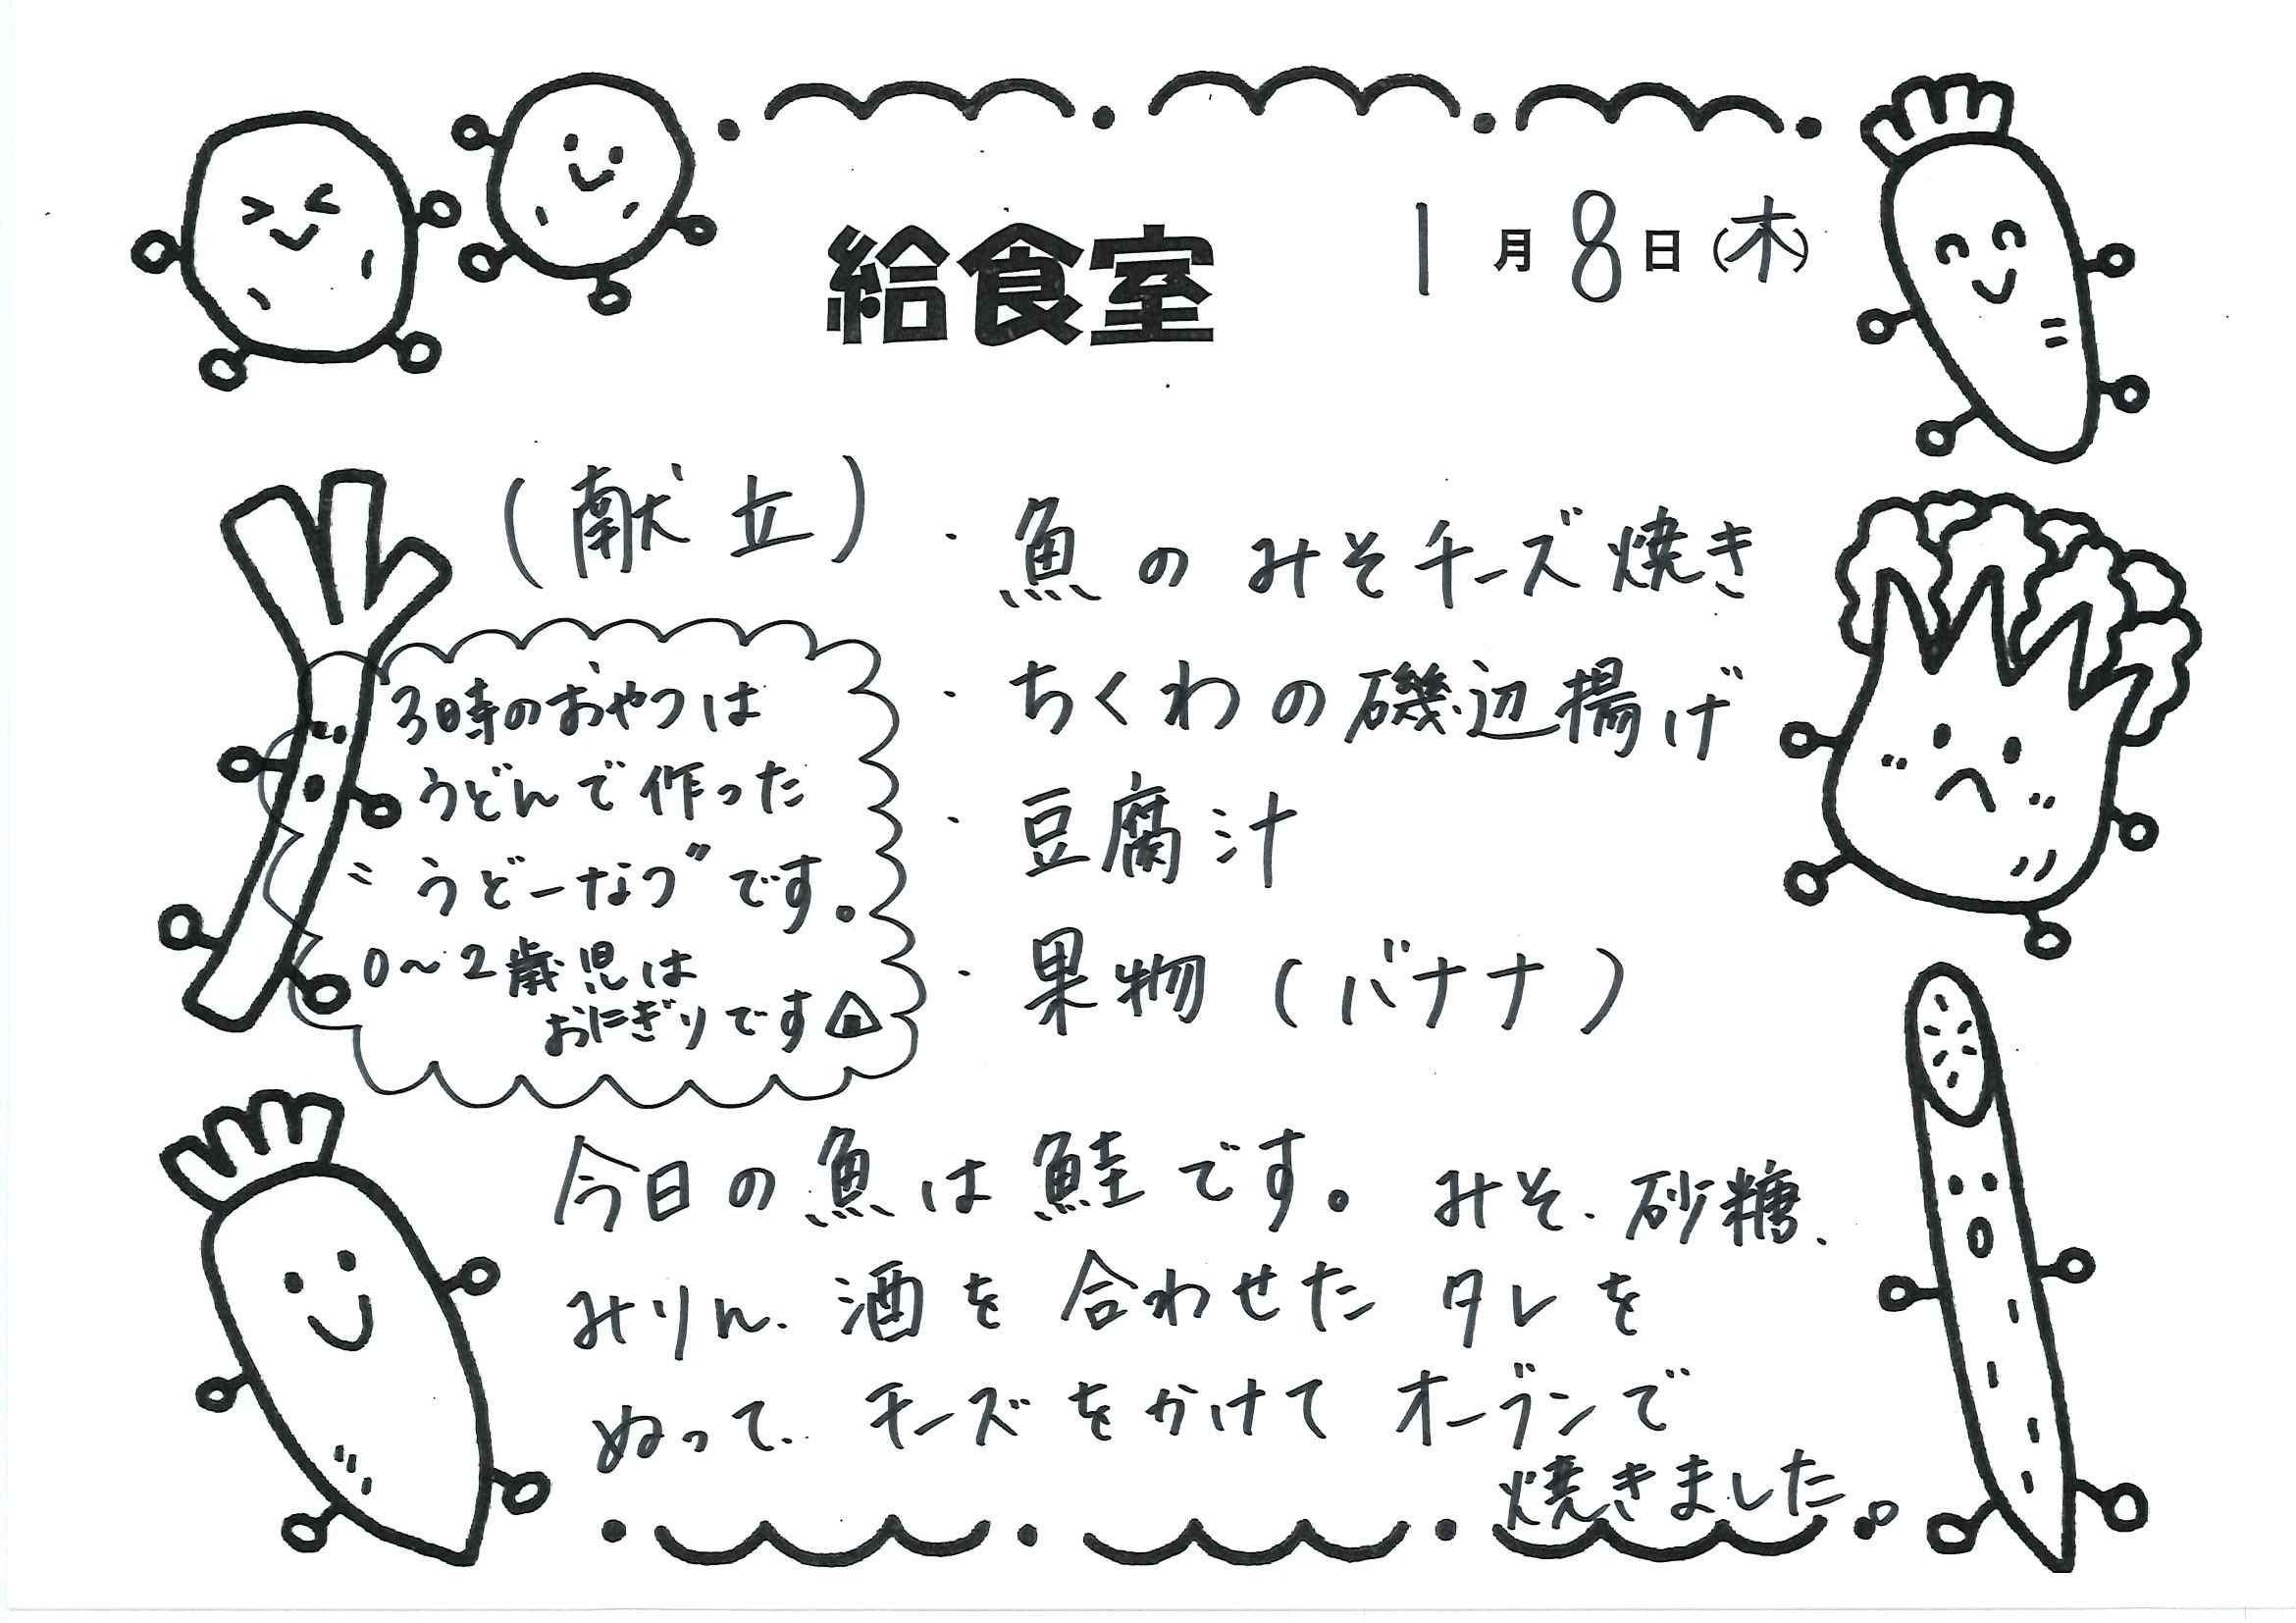 給食室
1月8日(木)
(献立)
・魚のみそチーズ焼き
・ちくわの磯辺揚げ
・豆腐汁
・果物(バナナ)
3時のおやつは
うどんで作った
"うどーなつ"です。
0~2歳児は
おにぎりです
今日の魚は鮭です。みそ、砂糖、
みりん、酒を合わせたタレを
ぬって、チーズをかけてオーブンで
焼きました。